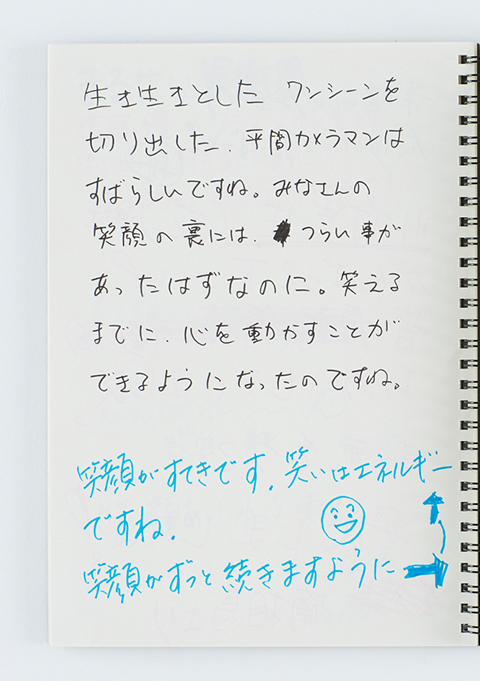 生き生きとした ワンシーンを
切り出した、平間カメラマンは
すばらしいですね。みなさんの
笑顔の裏には、つらい事が
あったはずなのに。笑える
までに、心を動かすことが
できるようになったのですね。
笑顔がすてきです。笑いはエネルギー
ですね。
笑顔がずっと続きますように